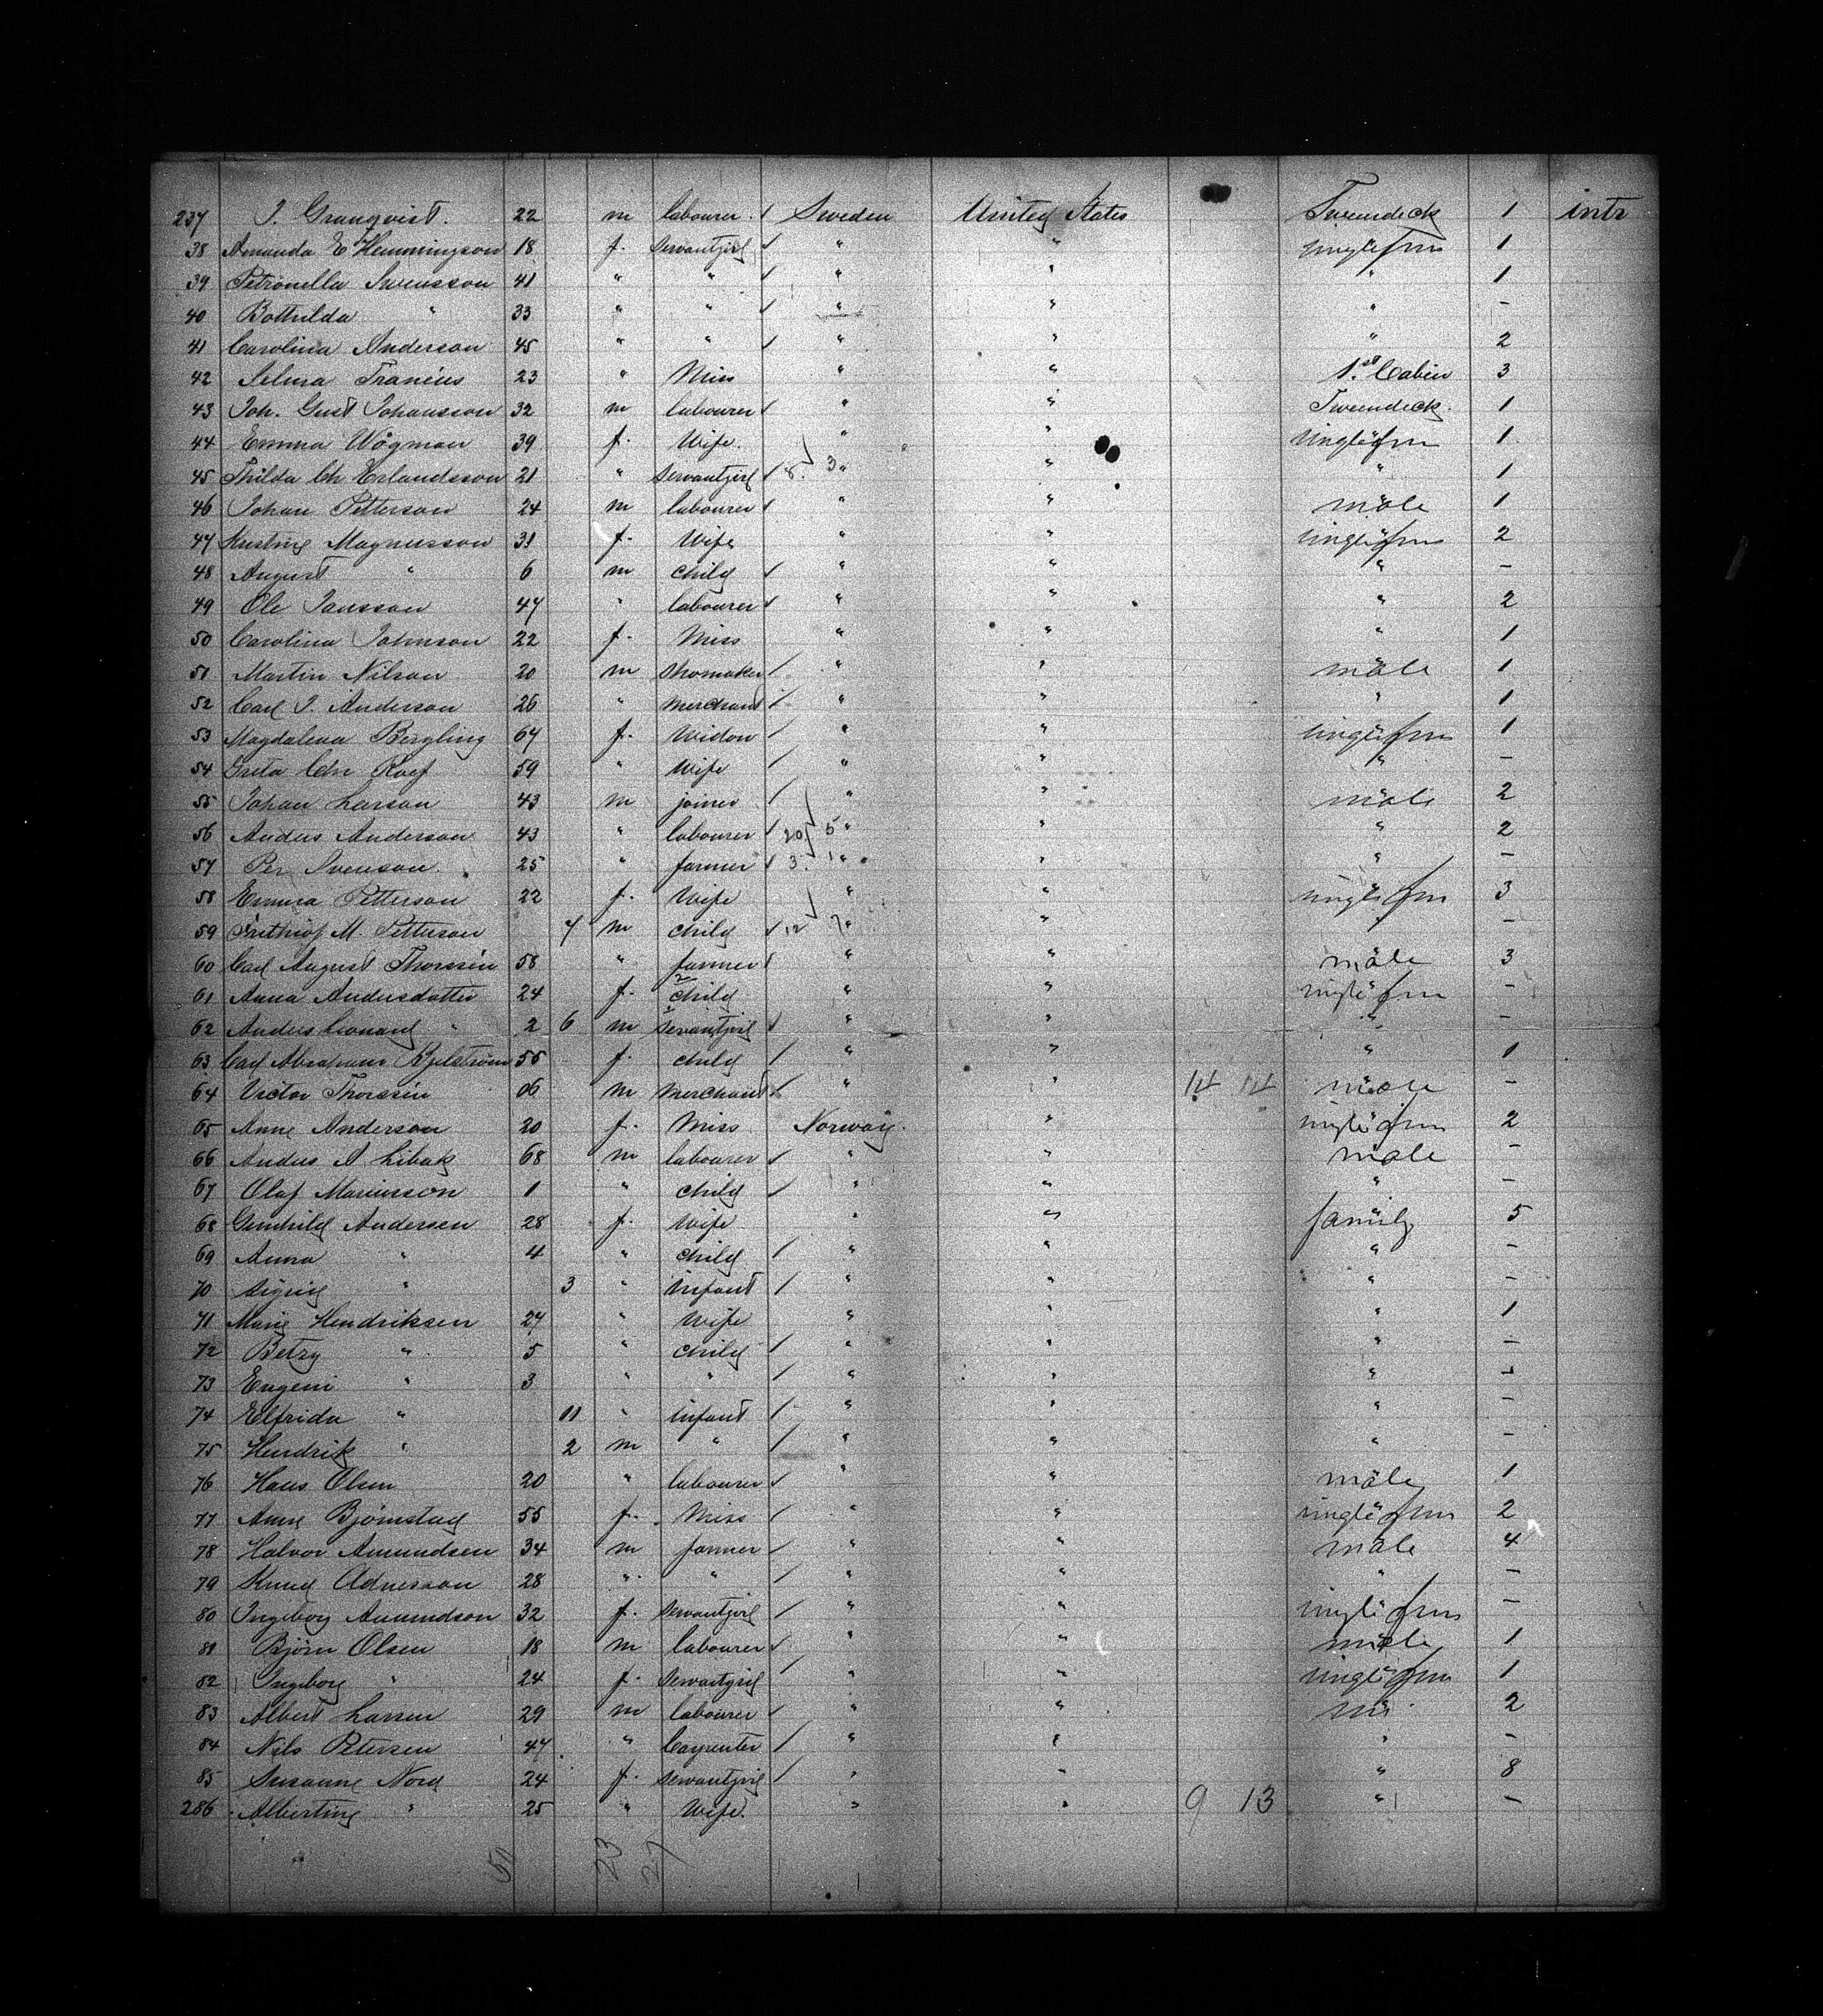 237 J. Granqvist. 22 m labourer. Sweden United States Tweendeck 1 intr
38 Amanda E Hemmingson 18 f. servantgirl " " single fm 1
39 Petronella Swensson 41 " " " " " 1
40 Bothilda " 33 " " " " " –
41 Carolina Anderson 45 " " " " " 2
42 Selma Tranéus 23 " Miss " " 1.st Cabin 3
43 Joh. Gust Johansson 32 m labourer " " Tweendeck. 1
44 Emma Wågman 39 f. Wife. " " single fm 1
45 Thilda Ch Erlandsson 21 " servantgirl 8. 3 " " " 1
46 Johan Petterson 24 m labourer " " male 1
47 Kristine Magnusson 31 f. Wife " " single fm 2
48 August " 6 m child " " " –
49 Ole Jansson 47 " labourer " " " 2
50 Carolina Johnson 22 f. Miss " " " 1
51 Martin Nilson 20 m shomaker " " male 1
52 Carl J. Anderson 26 " merchant " " " 1
53 Magdalena Bergling 67 f. Widow " " single fm 1
54 Greta Chr Roef 59 " Wife " " " –
55 Johan Larson 43 m joiner " " male 2
56 Anders Anderson 43 " labourer 20 5 " " " 2
57 Per Svenson. 25 " farmer 3. 1 " " " –
58 Emma Petterson 22 f. Wife " " single fm 3
59 Frithiof M. Petterson 7 m child 12 7 " " " –
60 Carl August Thorssén 58 " farmer " " male 3
61 Anna Andersdotter 24 f. child " " single fm –
62 Anders Leonard " 2 6 m servantgirl " " " –
63 Carl Abraham Kjelstrom 55 f. child " " " 1
64 Victor Thorssén 06 m merchant " " 14 14 male –
65 Anne Anderson 20 f. Miss Norway. " single fm 2
66 Anders A Libak 68 m labourer " " male –
67 Olaf Mariusson 1 " child " " " –
68 Gunhild Andersen 28 f. wife " " family 5
69 Anna " 4 " child " " " –
70 Signe " 3 " infant " " " –
71 Marie Hendriksen 27 " Wife " " " 1
72 Betzy " 5 " child " " " –
73 Eugeni " 3 " " " " " –
74 Elfrida " 11 " infant " " " –
75 Hendrik " 2 m " " " " –
76 Hans Olsen 20 " labourer " " male 1
77 Anne Bjørnstad 55 f. Miss " " single fm 2
78 Halvor Amundsen 34 m farmer " " male 4
79 Knud Adnesson 28 " " " " " –
80 Ingeborg Amundson 32 f. servantgirl " " single fm –
81 Bjørn Olsen 18 m labourer " " male 1
82 Ingeborg " 24 f. servantgirl " " single fm 1
83 Albert Larsen 29 m labourer " " 2
84 Nils Petersen 47 " Carpenter " " " –
85 Susanne Nord 24 f. servantgirl " " " 8
286 Albertine " 25 " Wife. " " 9 13 " –
50 23 27